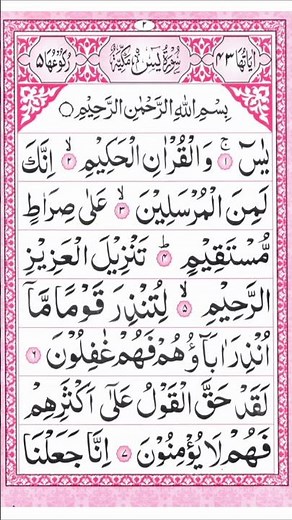 اٰيَاتُهَا سُوْرَةُ يٰسٓ مَكِّيَّةٌ رُكُوْعُهَا ۵
بِسْمِ اللّٰهِ الرَّحْمٰنِ الرَّحِيْمِ ○
يٰسٓ ۚ ۱ وَالْقُرْاٰنِ الْحَكِيْمِ ۙ ۲ اِنَّكَ
لَمِنَ الْمُرْسَلِيْنَ ۙ ۳ عَلٰى صِرَاطٍ
مُّسْتَقِيْمٍ ؕ ۴ تَنْزِيْلَ الْعَزِيْزِ
الرَّحِيْمِ ۙ ۵ لِتُنْذِرَ قَوْمًا مَّاۤ
اُنْذِرَ اٰبَآؤُهُمْ فَهُمْ غٰفِلُوْنَ ۶
لَقَدْ حَقَّ الْقَوْلُ عَلٰۤى اَكْثَرِهِمْ
فَهُمْ لَا يُؤْمِنُوْنَ ۷ اِنَّا جَعَلْنَا